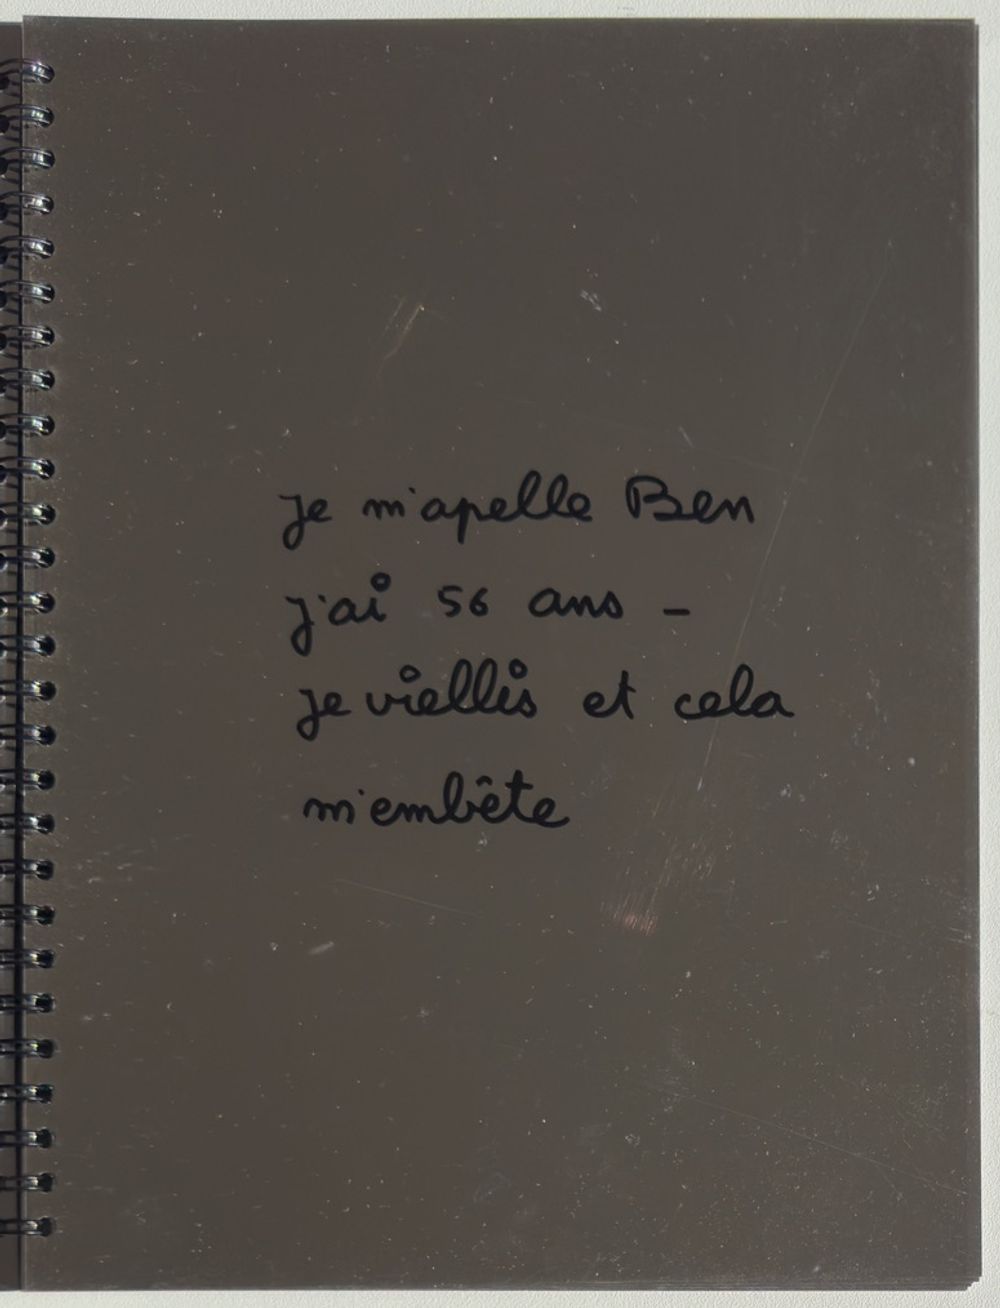 je m'apelle Ben
j'ai 56 ans -
je viellis et cela
m'embête